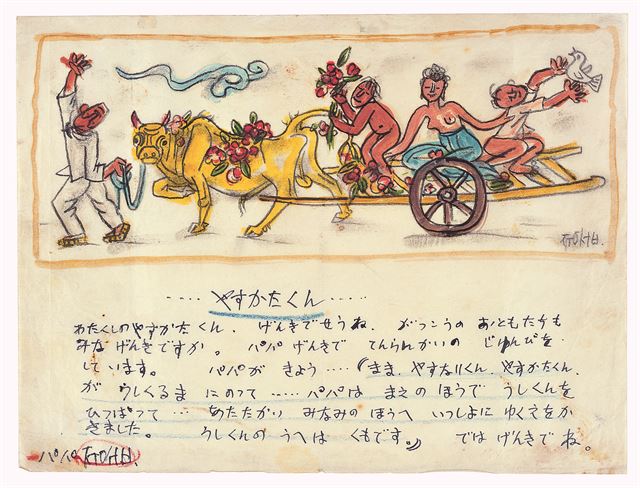 ㅈㅜㅇㅅㅓㅂ
‥‥ やすかたくん ‥‥‥
わたくしのやすかたくん、げんきでせうね、がつこうの おともたちも
みな げんきですか。パパ げんきで てんらんかいの じゅんびを
しています。パパが きょう‥‥(まま、やすなりくん、やすかたくん、
が うしくるま にのって‥‥パパは まえのほうで うしくんを
ひっぱって‥‥あたたかい みなみの ほうへ いつしよに ゆくえをか
きました。うしくんの うへは くもです。) では げんきで ね。
パパ ㅈㅜㅇㅅㅓㅂ.